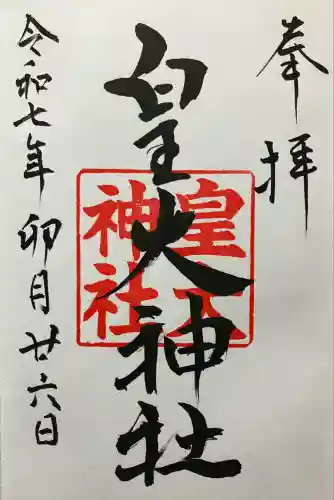 奉拝
皇大神社
皇大
神社
令和七年 卯月廿六日